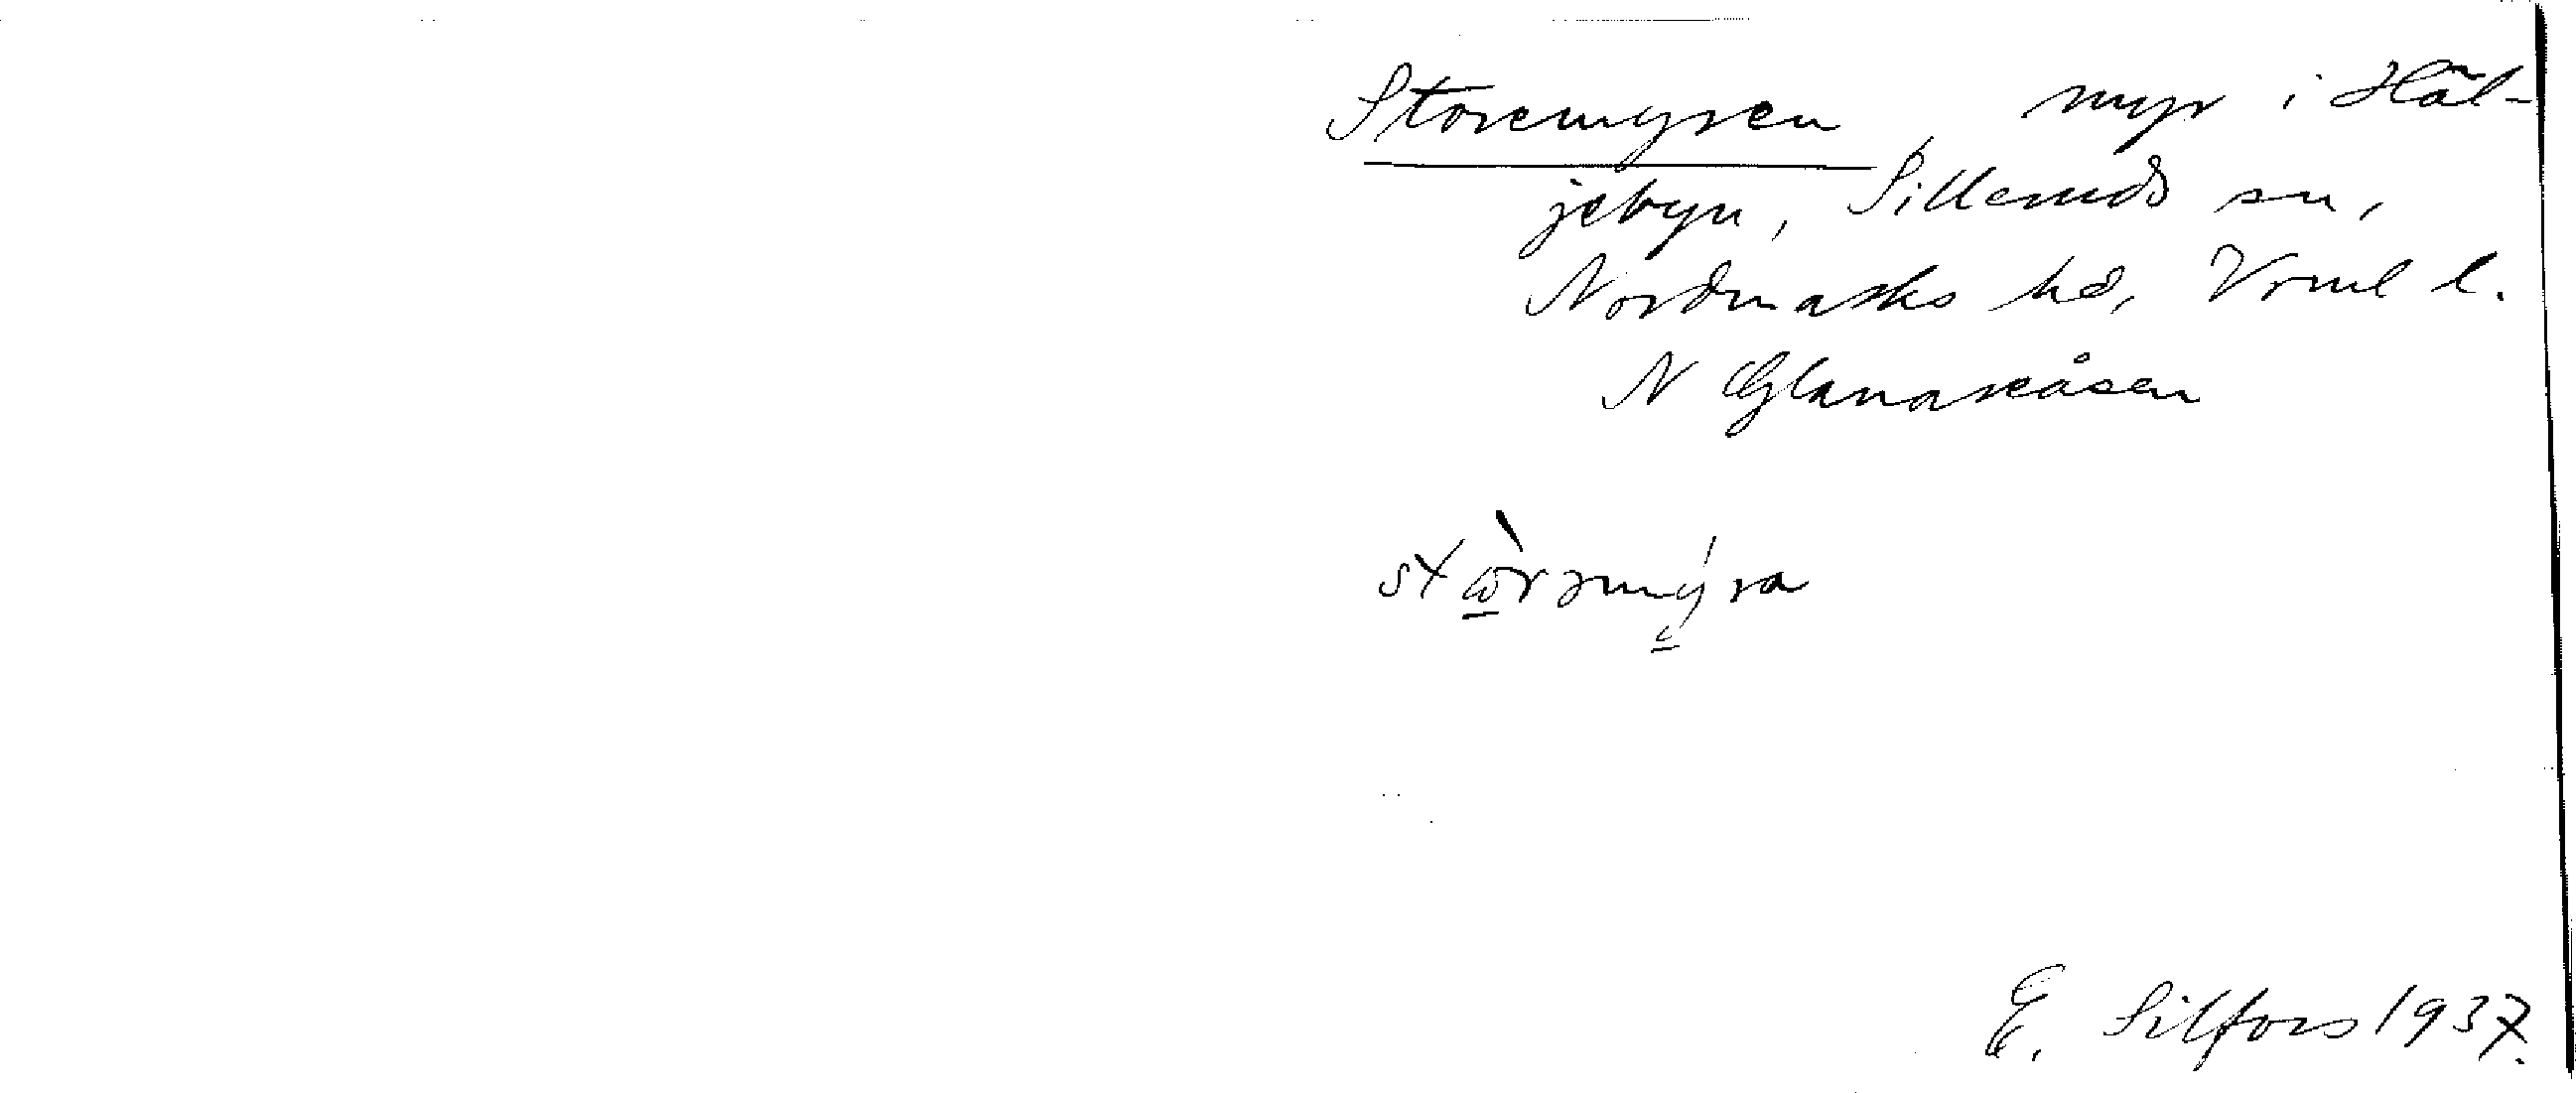 Storemyren, myr i Häl-
jebyn, Silleruds sn,
Nordmarks hd, Vrml l.
N Glanaseåsen
stὼrəmy̆́ra
E. Silfors 1937.